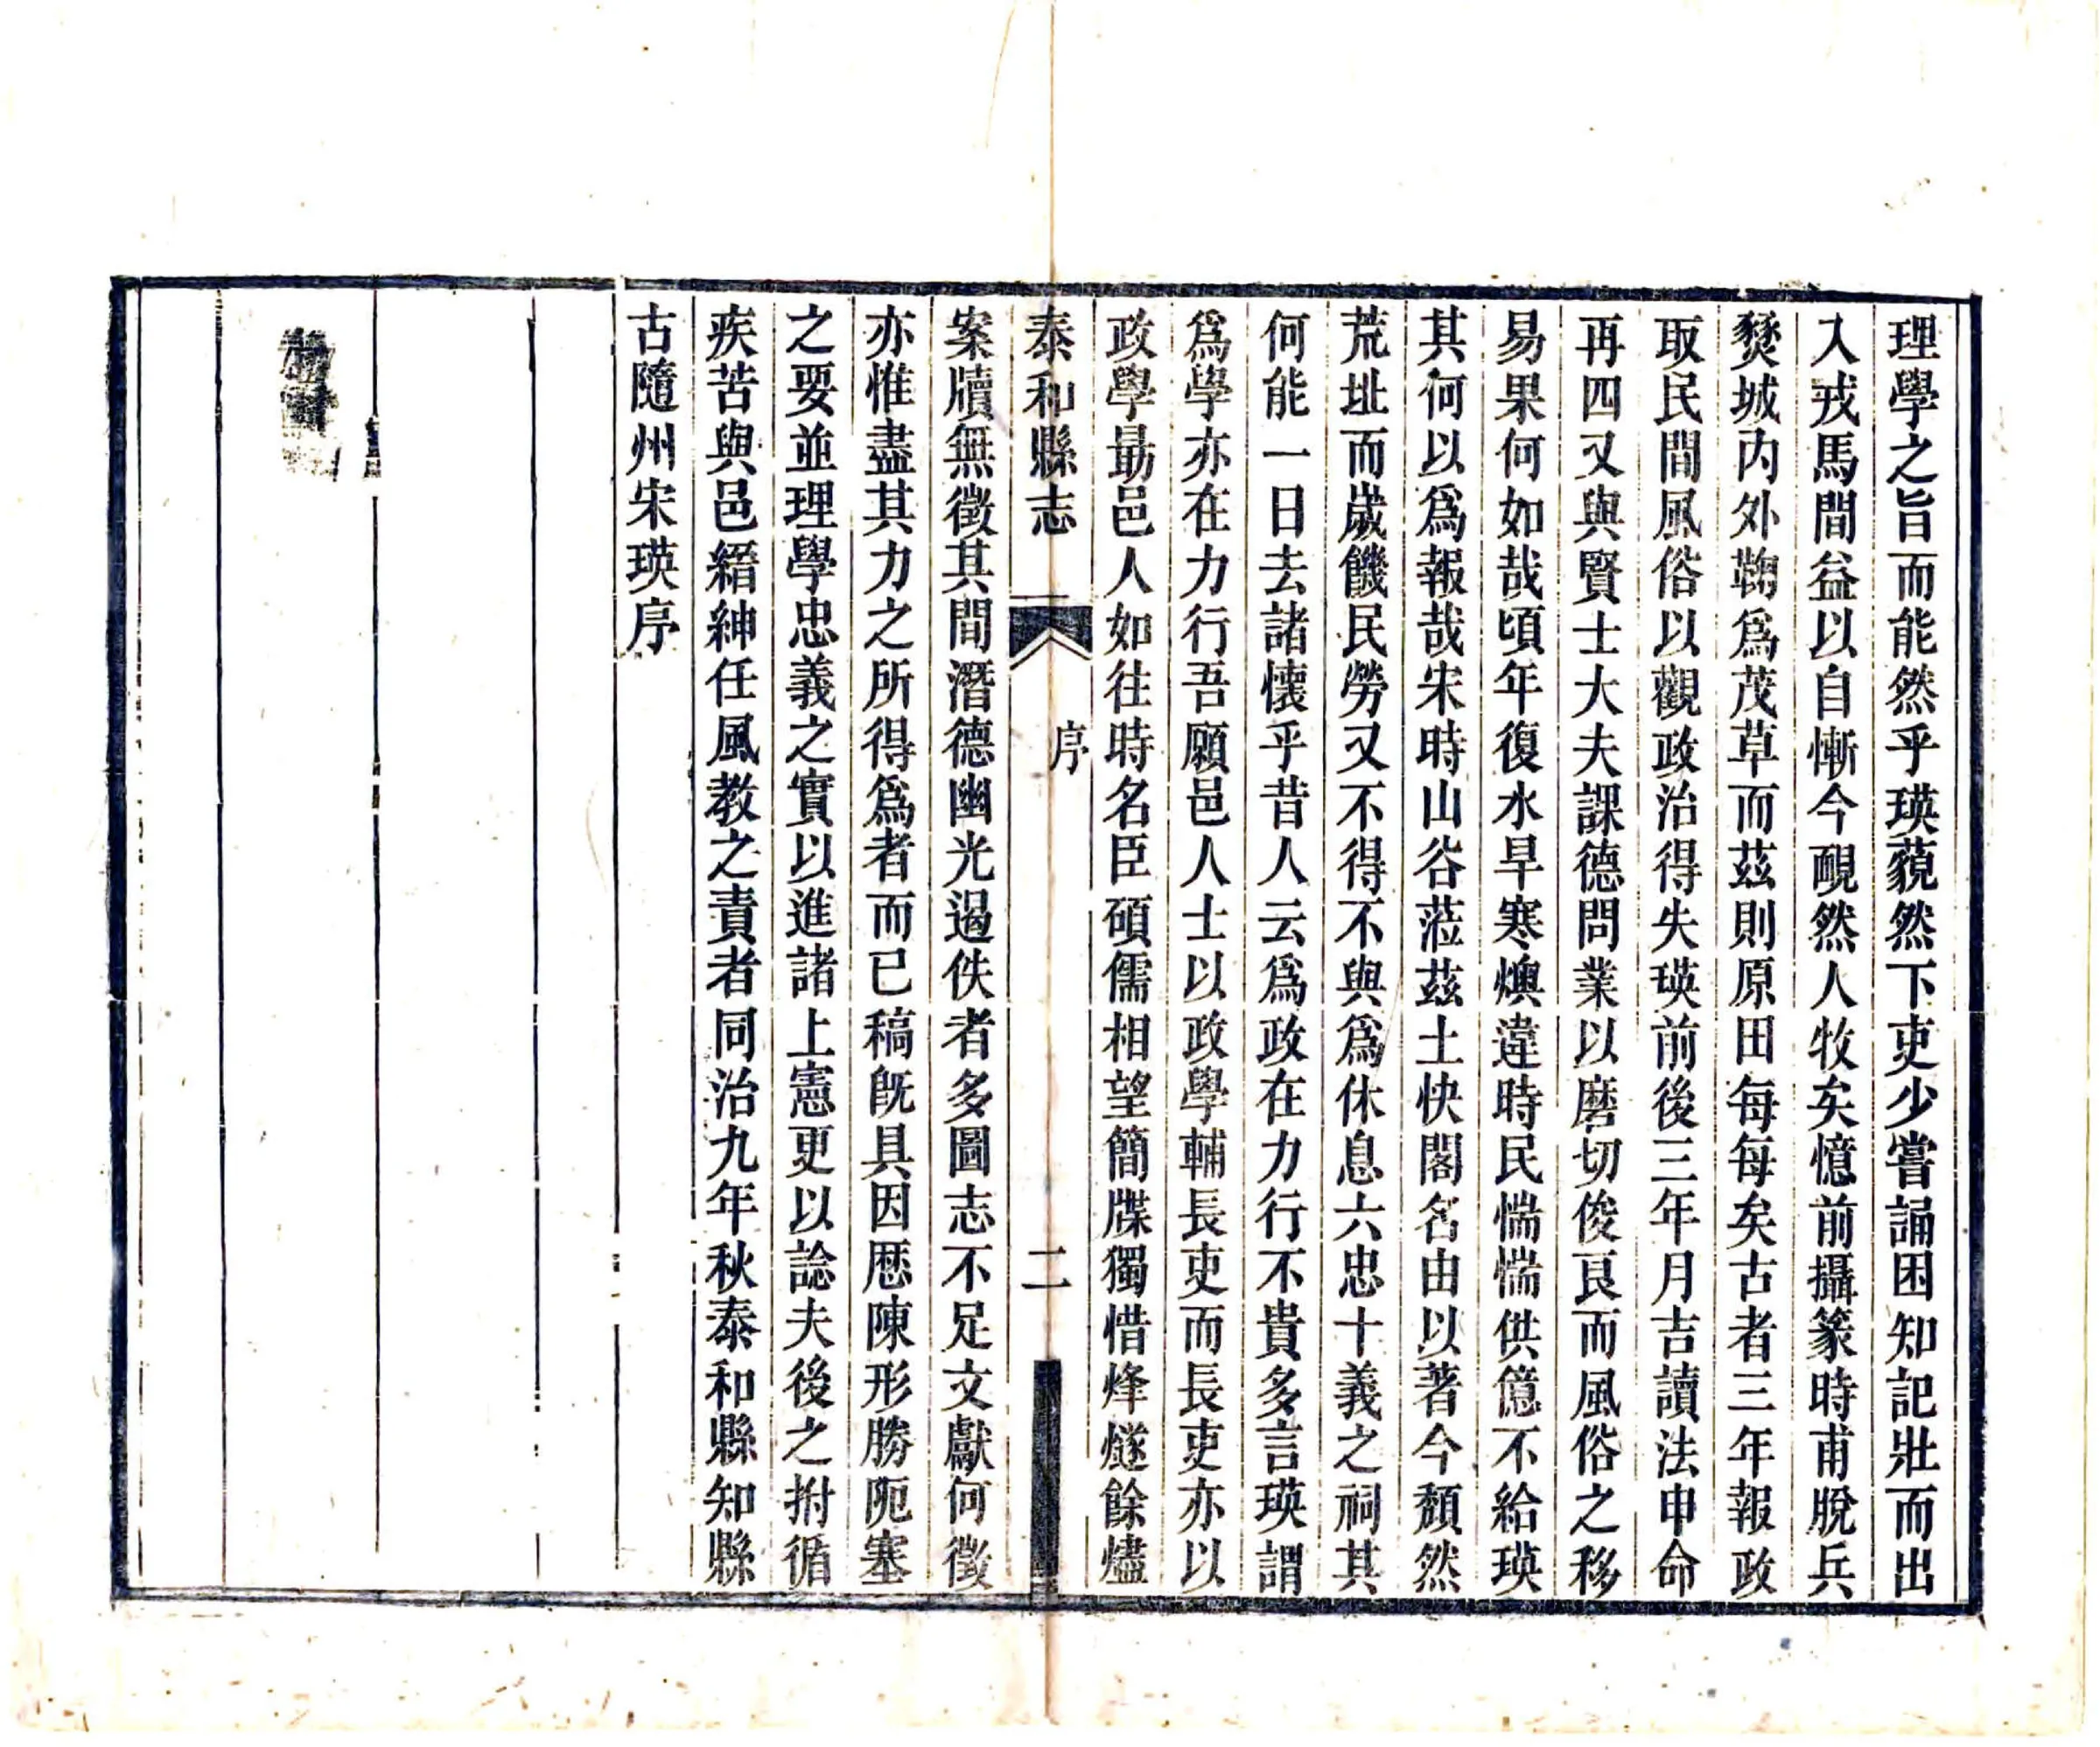 理學之旨而能然乎瑛藐然下吏少嘗誦困知記壯而出
入戎馬間益以自慚今靦然人牧矣憶前攝篆時甫脫兵
燹城内外鞠爲茂草而茲則原田每每矣古者三年報政
取民間風俗以觀政治得失瑛前後三年月吉讀法申命
再四又與賢士大夫課德問業以磨切俊良而風俗之移
易果何如哉頃年復水旱寒燠違時民惴惴供億不給瑛
其何以爲報哉宋時山谷蒞茲土快閣名由以著今頽然
荒址而歲饑民勞又不得不與爲休息六忠十義之祠其
何能一日去諸懷乎昔人云爲政在力行不貴多言瑛謂
爲學亦在力行吾願邑人士以政學輔長吏而長吏亦以
政學勗邑人如往時名臣碩儒相望簡牒獨惜烽燧餘燼
泰和縣志 序 二
案牘無徵其間潛德幽光遏佚者多圖志不足文獻何徵
亦惟盡其力之所得爲者而已稿旣具因歷陳形勝阨塞
之要並理學忠義之實以進諸上憲更以諗夫後之拊循
疾苦與邑縉紳任風教之責者同治九年秋泰和縣知縣
古隨州宋瑛序